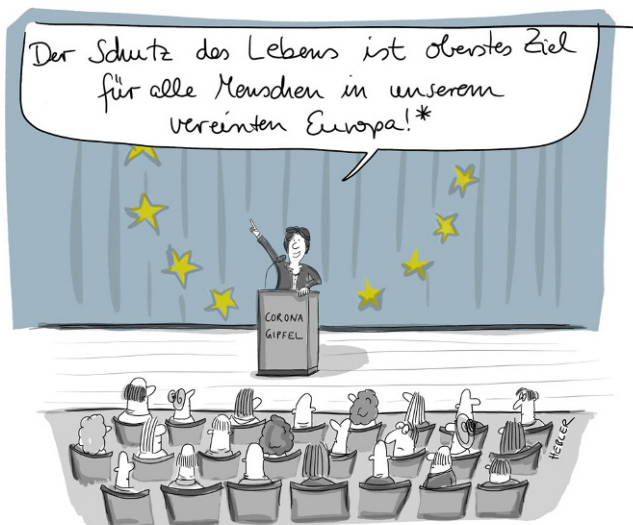 Der Schutz des Lebens ist oberstes Ziel
für alle Menschen in unserem
vereinten Europa!*
CORONA
GIPFEL
HEBLER